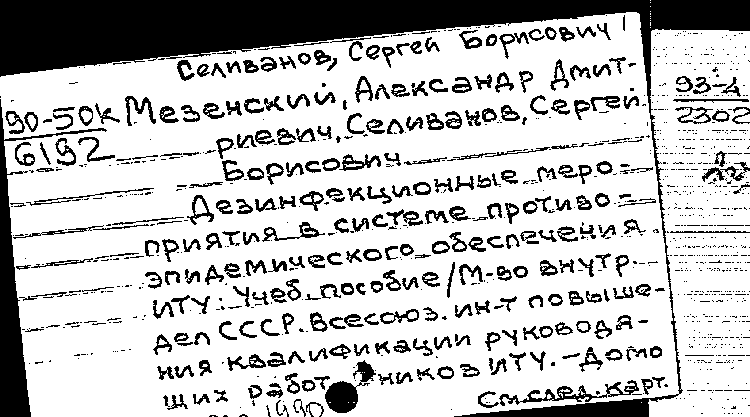 Селиванов, Сергей Борисович
90-50к Мезенский, Александр Дмит-
6192
риевич, Селиванов, Сергей
Борисович
Дезинфекционные меро-
приятия в системе противо-
эпидемического обеспечения
ИТУ: Учеб. пособие / М-во внутр.
дел СССР. Всесоюз. ин-т повыше-
ния квалификации руководя-
щих работников ИТУ. – Домо
1990
См. след. карт.
93-4
2302